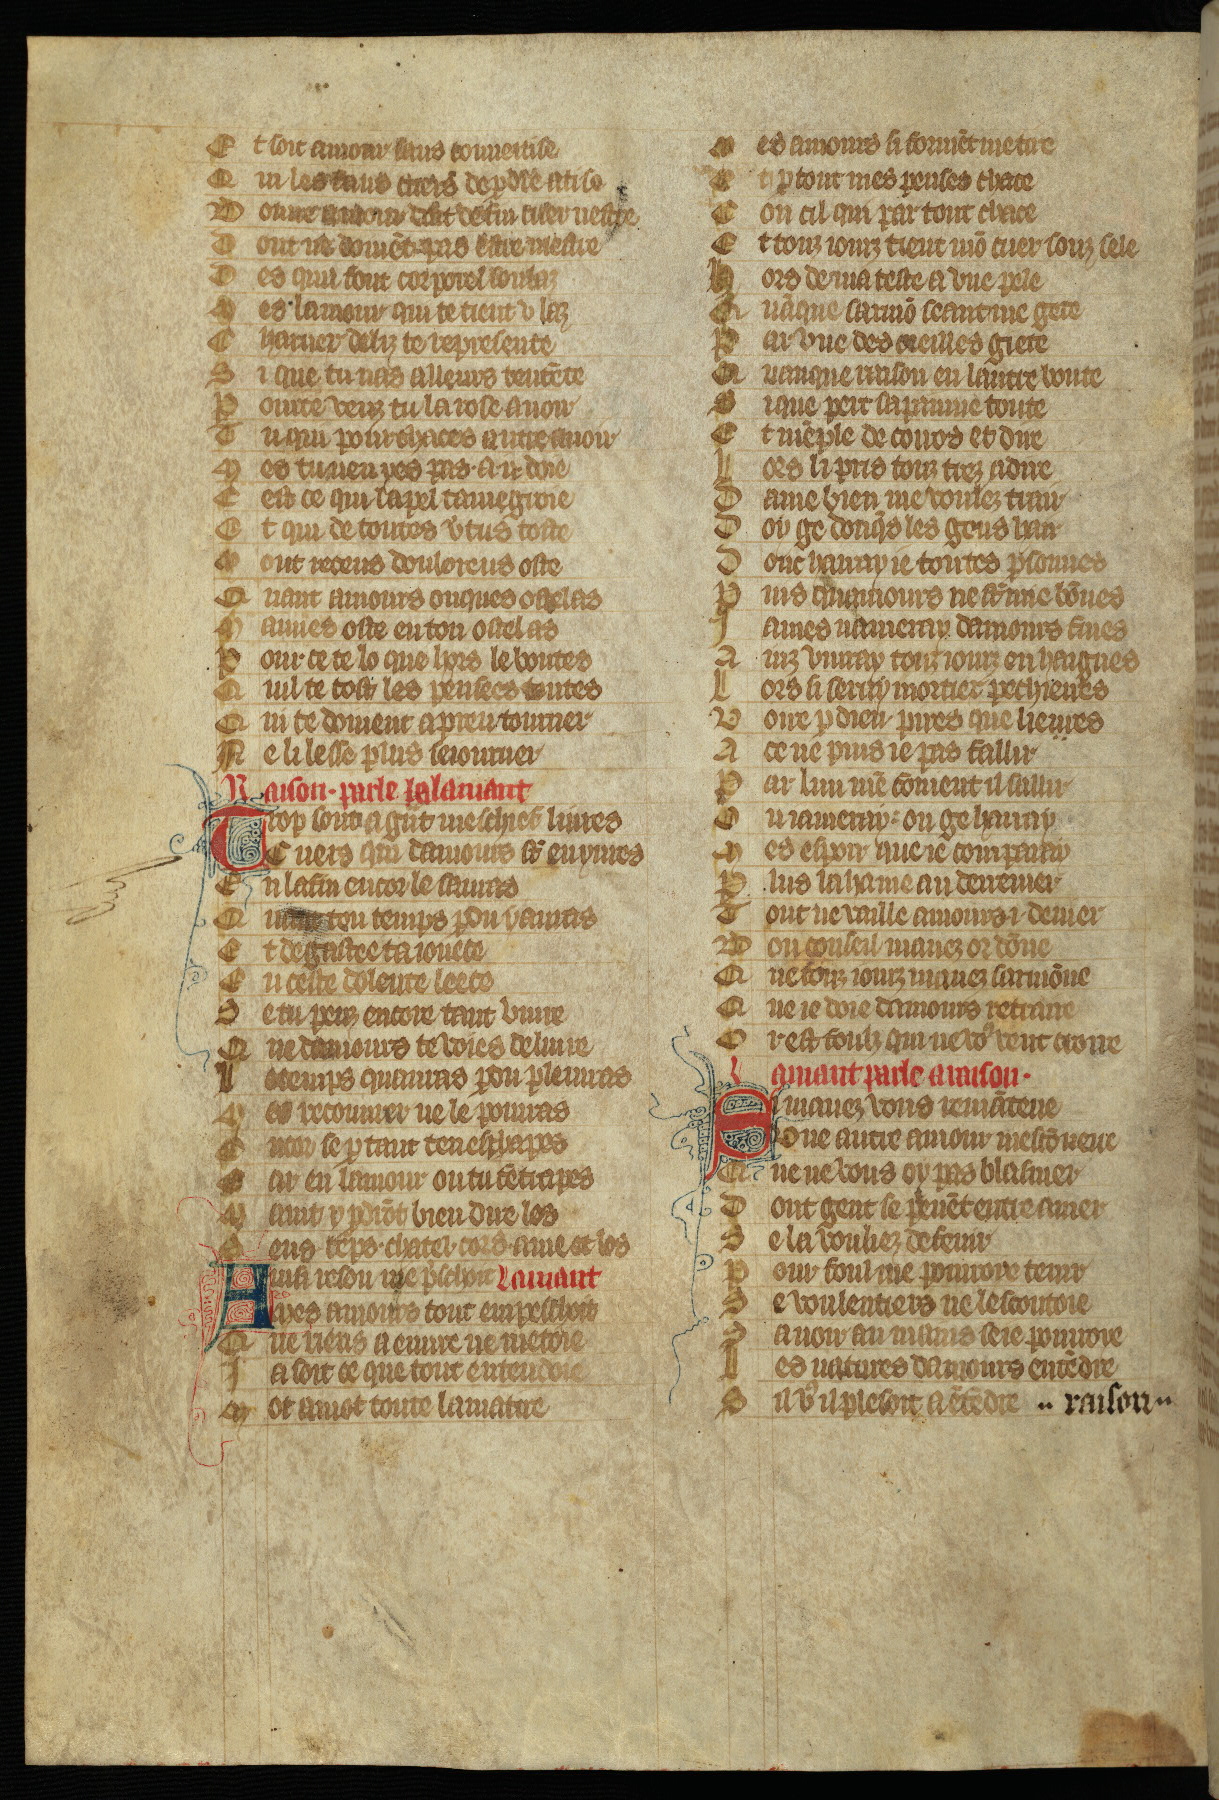 E t soit amour sans couuertise
Q ui les faus cuers de pdre atise
B onne amour doit de fin cuer nestre
D ont ne doiuēt pas estre mestre
D es qui font corporel soulaz
M es lamour qui te tient v laz
C harner deliz te represente
S i que tu nas alleurs tentēte
P ource veuz tu la rose auoir
T u qui pourchaces autre auoir
M es tu nen yes pas a ii doie
C est ce qui la pel tamegroie
E t qui de toutes vtus toste
M out receus doulereus oste
Q uant amours onques ostelas
M auues oste en ton ostel as
P our ce te lo que hors le boutes
Q uil te tost les pensees toutes
Q ui te doiuent a preu tourner
N e li lesse plus seiourner
Raison parle a lamant
Trop sont a grāt meschief liures
C uers qui damours sōt enyures
E n la fin encor le sauras
Q uant ton temps pdu y auras
E t degastee ta iouete
E n ceste dolente leece
S e tu peuz encore tant viure
Q ue damours te voies deliure
L e temps quauras pdu pleurras
M es recouurer ne le pourras
E ncor se p tant ten eschapes
C ar en lamour ou tu tētrapes
M aint y pdiōt bien dire los
S ens tēps chatel cors ame et los
Ainsi reson me preschoit Lamant
Mes amours tout empeschoit
Q ue riens a euure ne metoie
J a soit ce que tout entendoie
M ot a mot toute la matire
M es amours si forment me tire
Q ui p tout mes penses chace
C on cil qui par tout chace
E t touz iourz tient mō cuer souz sele
H ors de ma teste a vne pele
Q uāque sarmō seant me gete
P ar vne des oreilles giete
Q uanque raison en lautre boute
S i que pert sa paine toute
E t mēple de couros et dire
L ors li pris touz irez a dire
D ame bien me voulez trair
D oy ge donqs les gens hair
D onc harray ie toutes psonnes
P uis quamours ne sōt mie bōnes
J ames nameray damours fines
A inz viuray touz iourz en haignes
L ors si seray mortiex pechierres
V oire p dieu pires que lierres
A ce ne puis ie pas fallir
P ar lun mē couient il sallir
O u iameray ou ge harray
M es espoir que ie comparray
P lus la haine au derrenier
T out ne vaille amours i denier
B on conseil mauez or dōne
Q ue touz iourz mauez sarmōne
Q ue ie doie damours retraire
O r est foulz qui ne vo⁹ veut croire
L amant parle a raison
Si mauez vous ramāteue
Vne autre amour mescōneue
Q ue ne vous oy pas blasmer
D ont gent se peuēt entre amer
S e la vouliez defenir
P our foul me pourroie tenir
S e voulentiers ne lescoutoie
S auoir au mains se ie pourroie
L es natures damours entēdre
S il v⁹ il plesoit a ētēdre raison